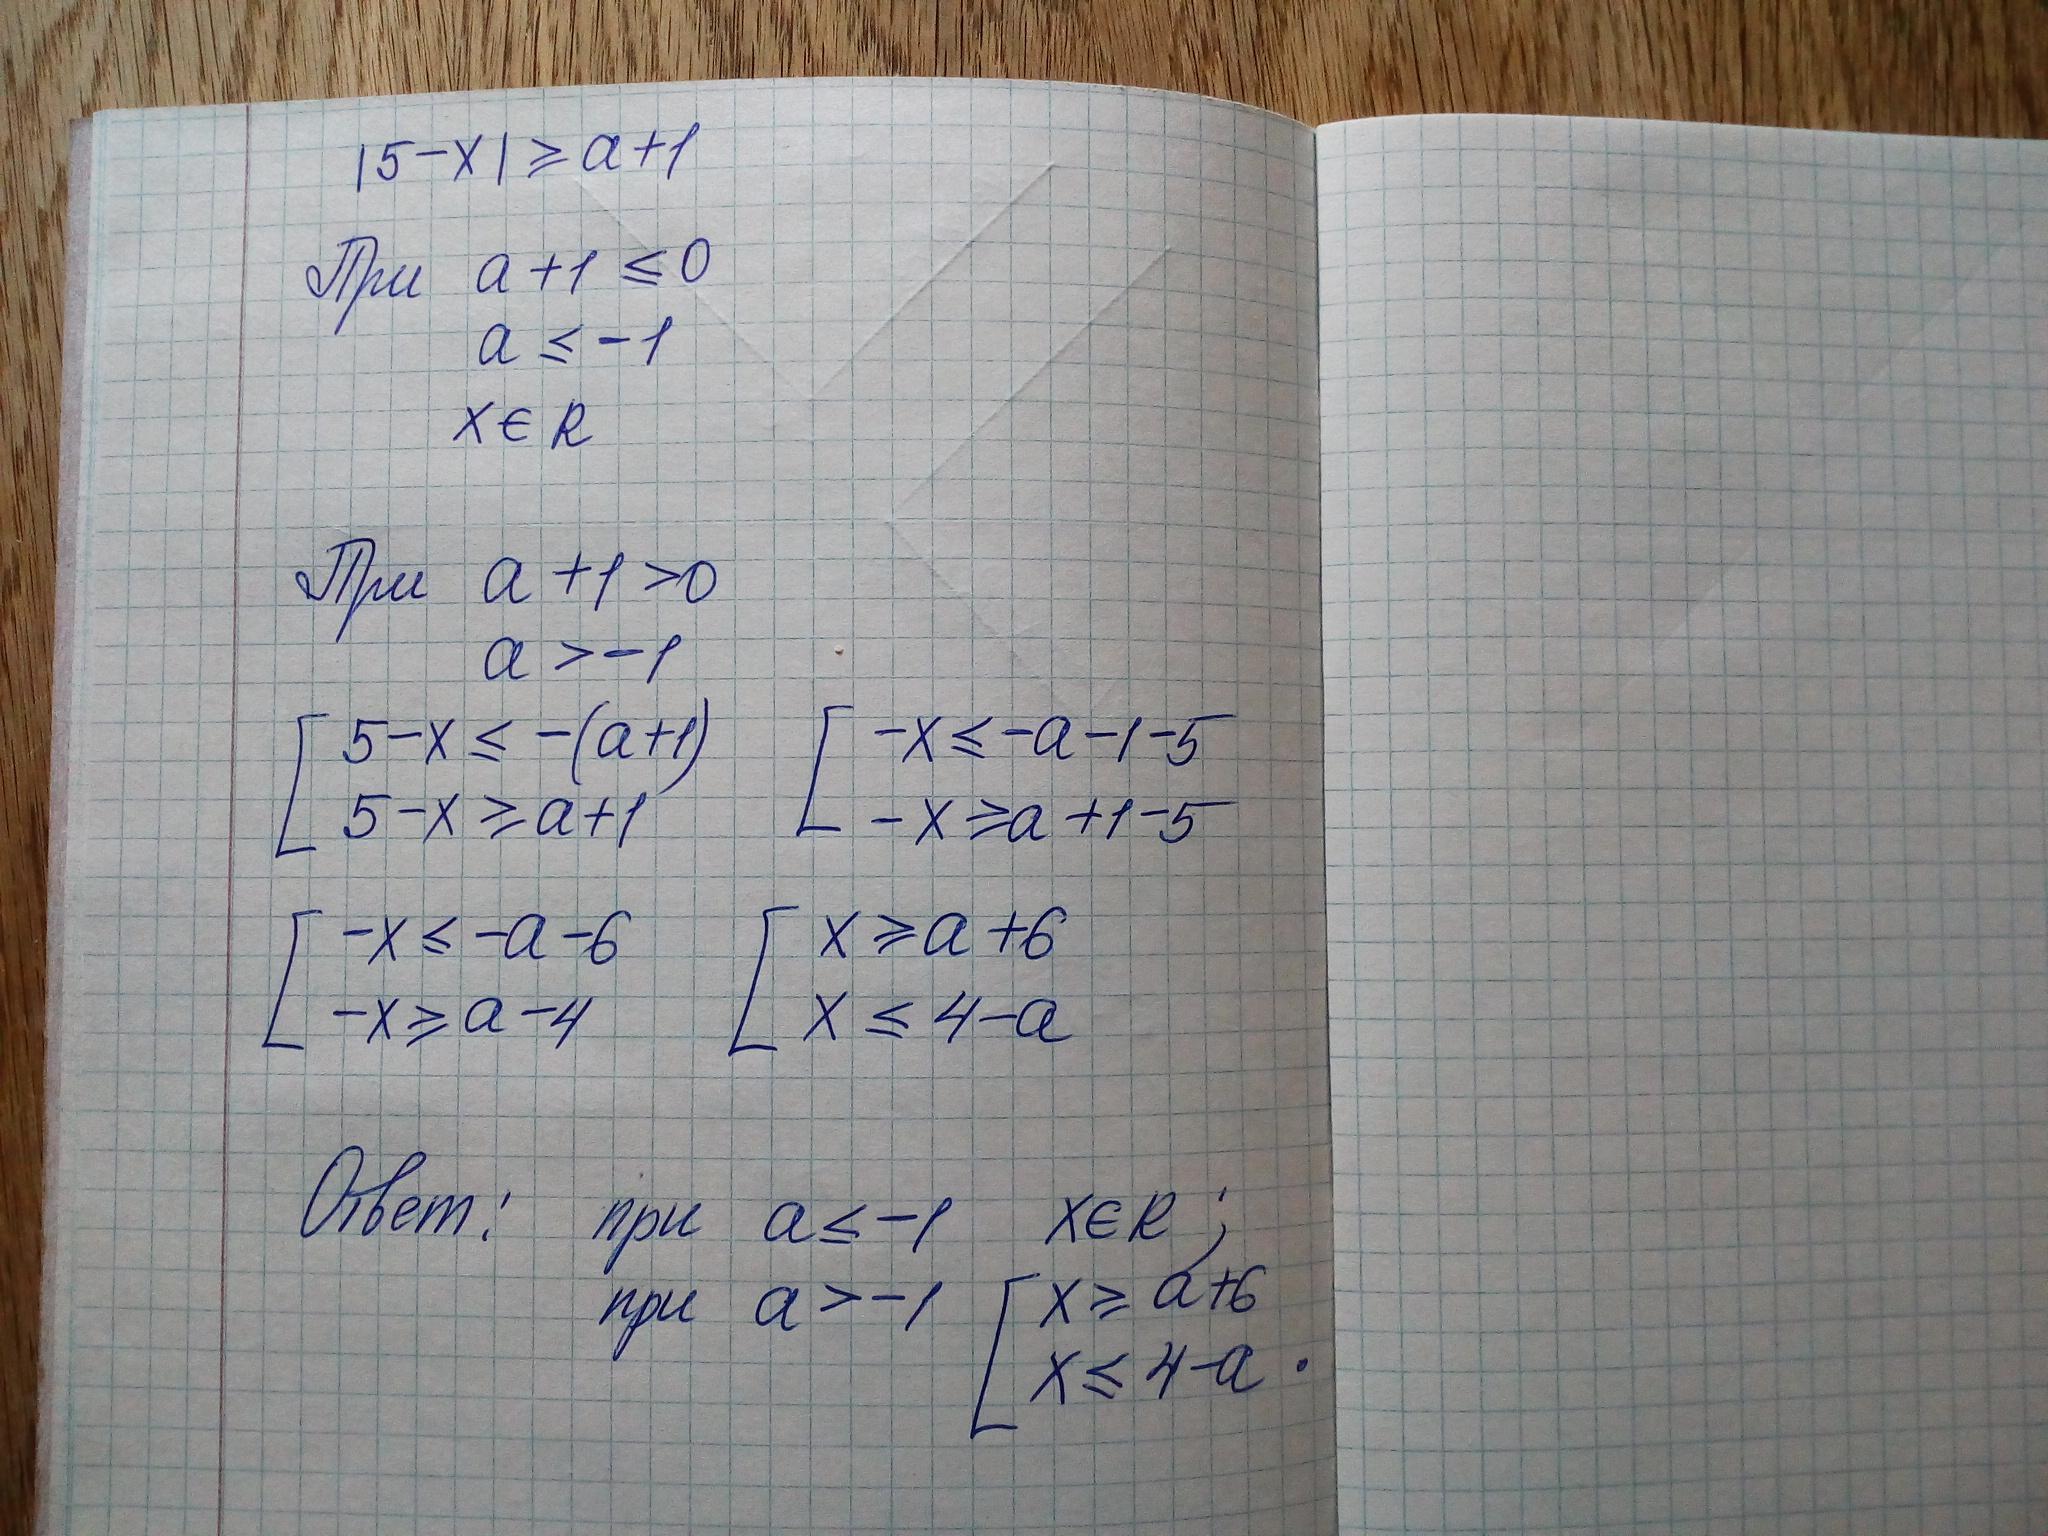 |5-x| ≥ a+1
При a+1 ≤ 0
a ≤ -1
x ∈ R
При a+1 > 0
a > -1
[ 5-x ≤ -(a+1) [ -x ≤ -a-1-5
5-x ≥ a+1 -x ≥ a+1-5
[ -x ≤ -a-6 [ x ≥ a+6
-x ≥ a-4 x ≤ 4-a
Ответ: при a ≤ -1 x ∈ R;
при a > -1 [ x ≥ a+6
x ≤ 4-a.